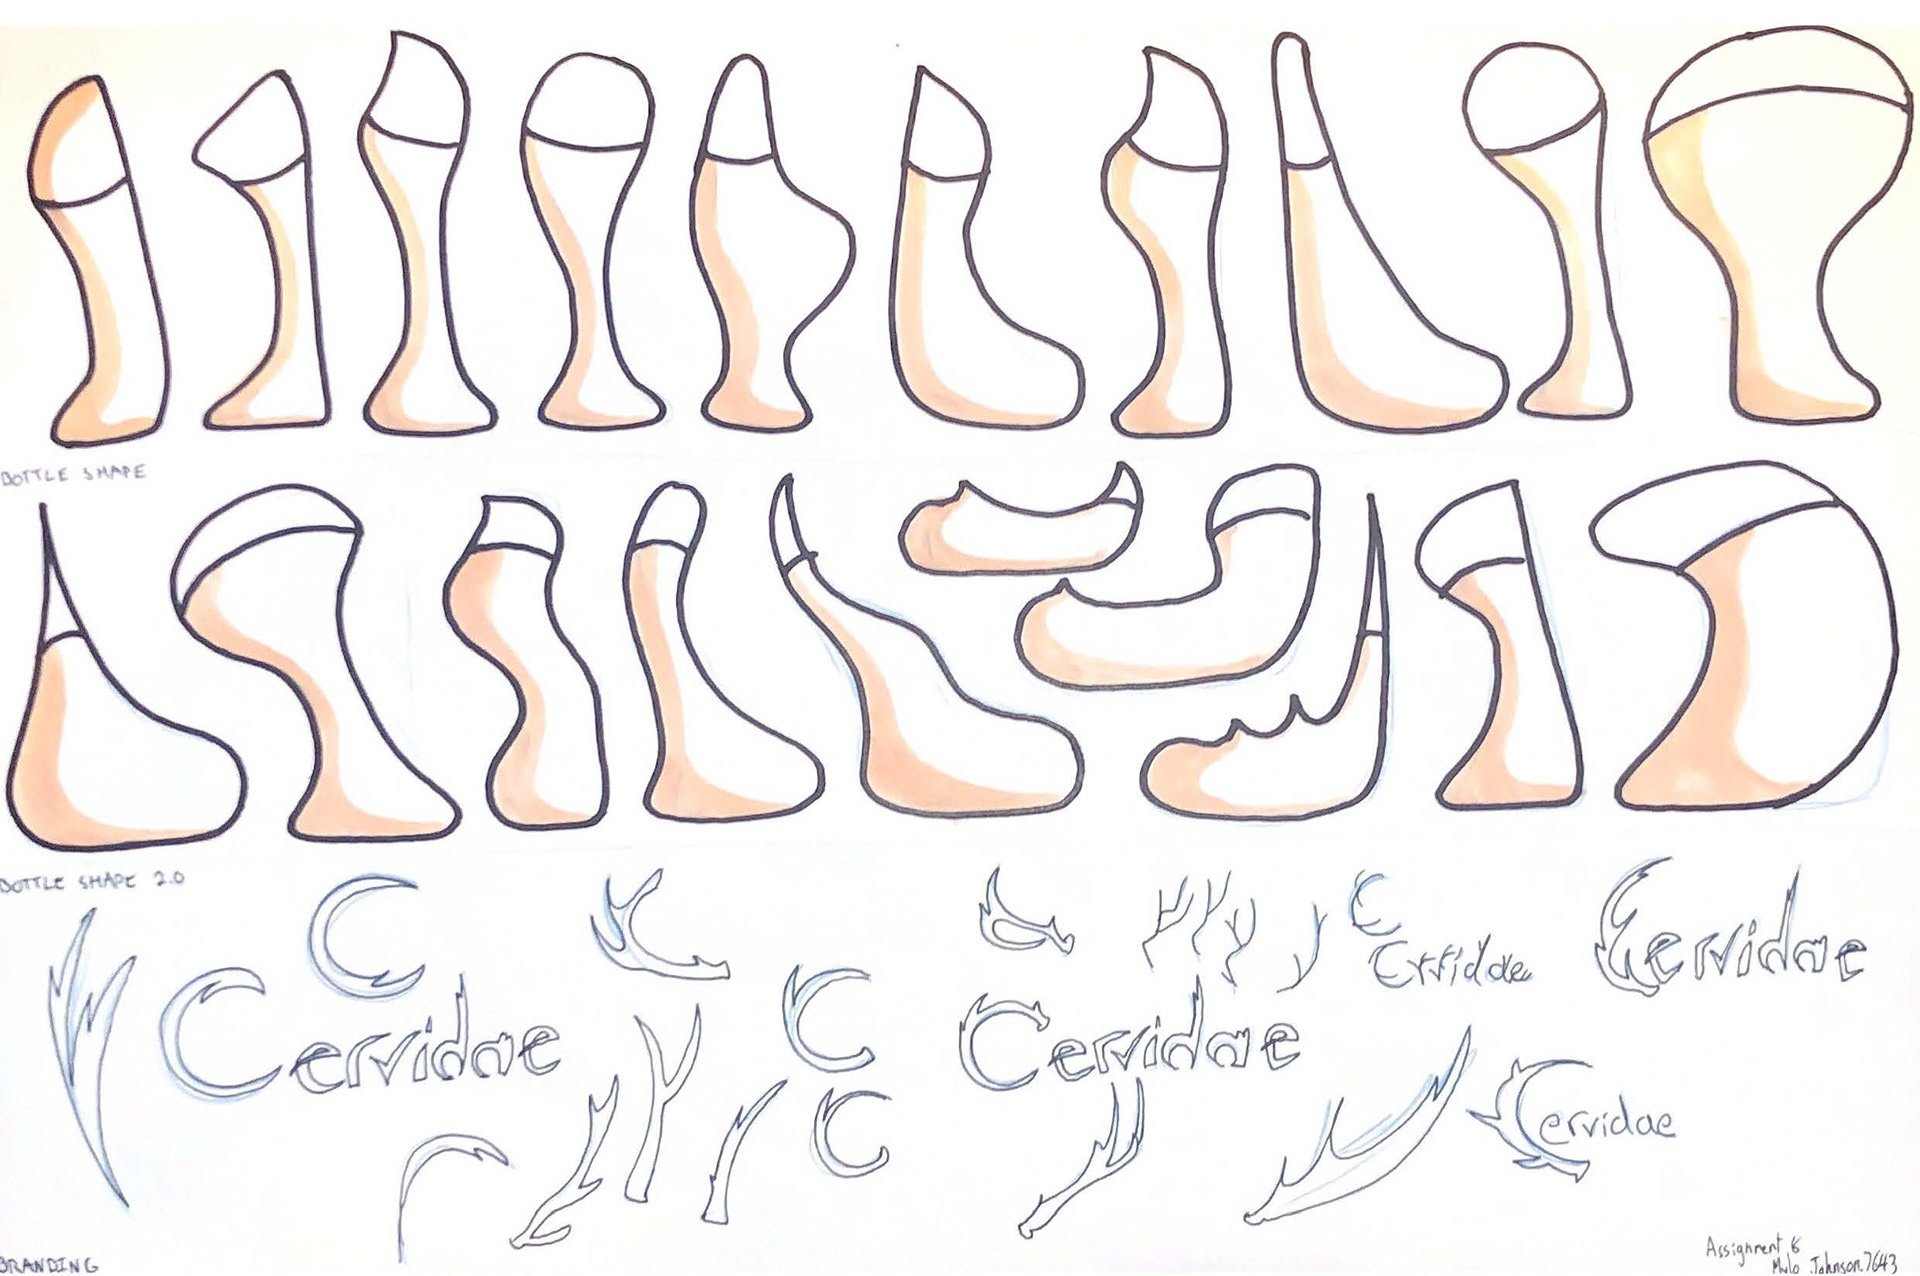 BOTTLE SHAPE
BOTTLE SHAPE 2.0
C
C
Cervidae
Cervidae
Cervidae
C
Cervidae
C
Cervidae
BRANDING
Assignment 8
Johnson.7643